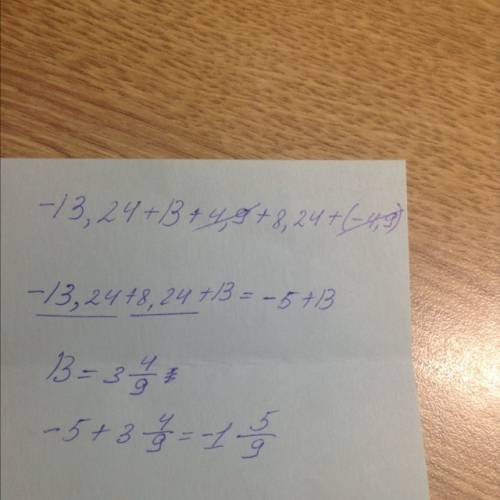 -13,24+B+4,9+8,24+(-4,9)
-13,24+8,24+B=-5+B
B=3 4/9
-5+3 4/9=-1 5/9